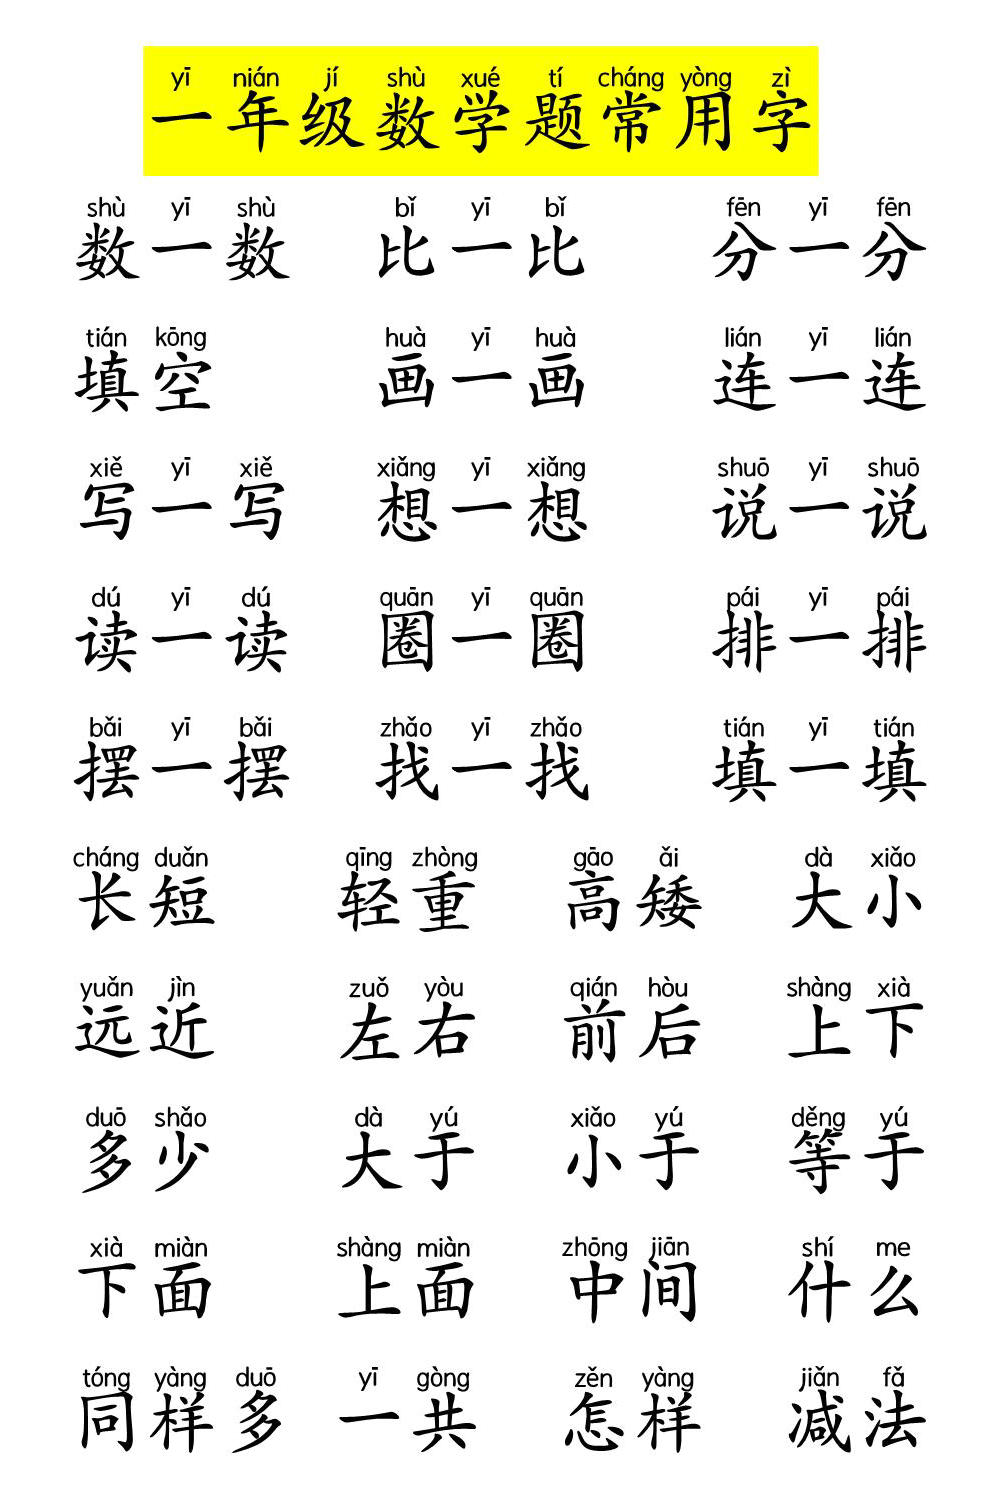 yī nián jí shù xué tí cháng yòng zì
一年级数学题常用字
shù yī shù bǐ yī bǐ fēn yī fēn
数一数 比一比 分一分
tián kōng huà yī huà lián yī lián
填空 画一画 连一连
xiě yī xiě xiǎng yī xiǎng shuō yī shuō
写一写 想一想 说一说
dú yī dú quān yī quān pái yī pái
读一读 圈一圈 排一排
bǎi yī bǎi zhǎo yī zhǎo tián yī tián
摆一摆 找一找 填一填
cháng duǎn qīng zhòng gāo ǎi dà xiǎo
长短 轻重 高矮 大小
yuǎn jìn zuǒ yòu qián hòu shàng xià
远近 左右 前后 上下
duō shǎo dà yú xiǎo yú děng yú
多少 大于 小于 等于
xià miàn shàng miàn zhōng jiān shí me
下面 上面 中间 什么
tóng yàng duō yī gòng zěn yàng jiǎn fǎ
同样多 一共 怎样 减法